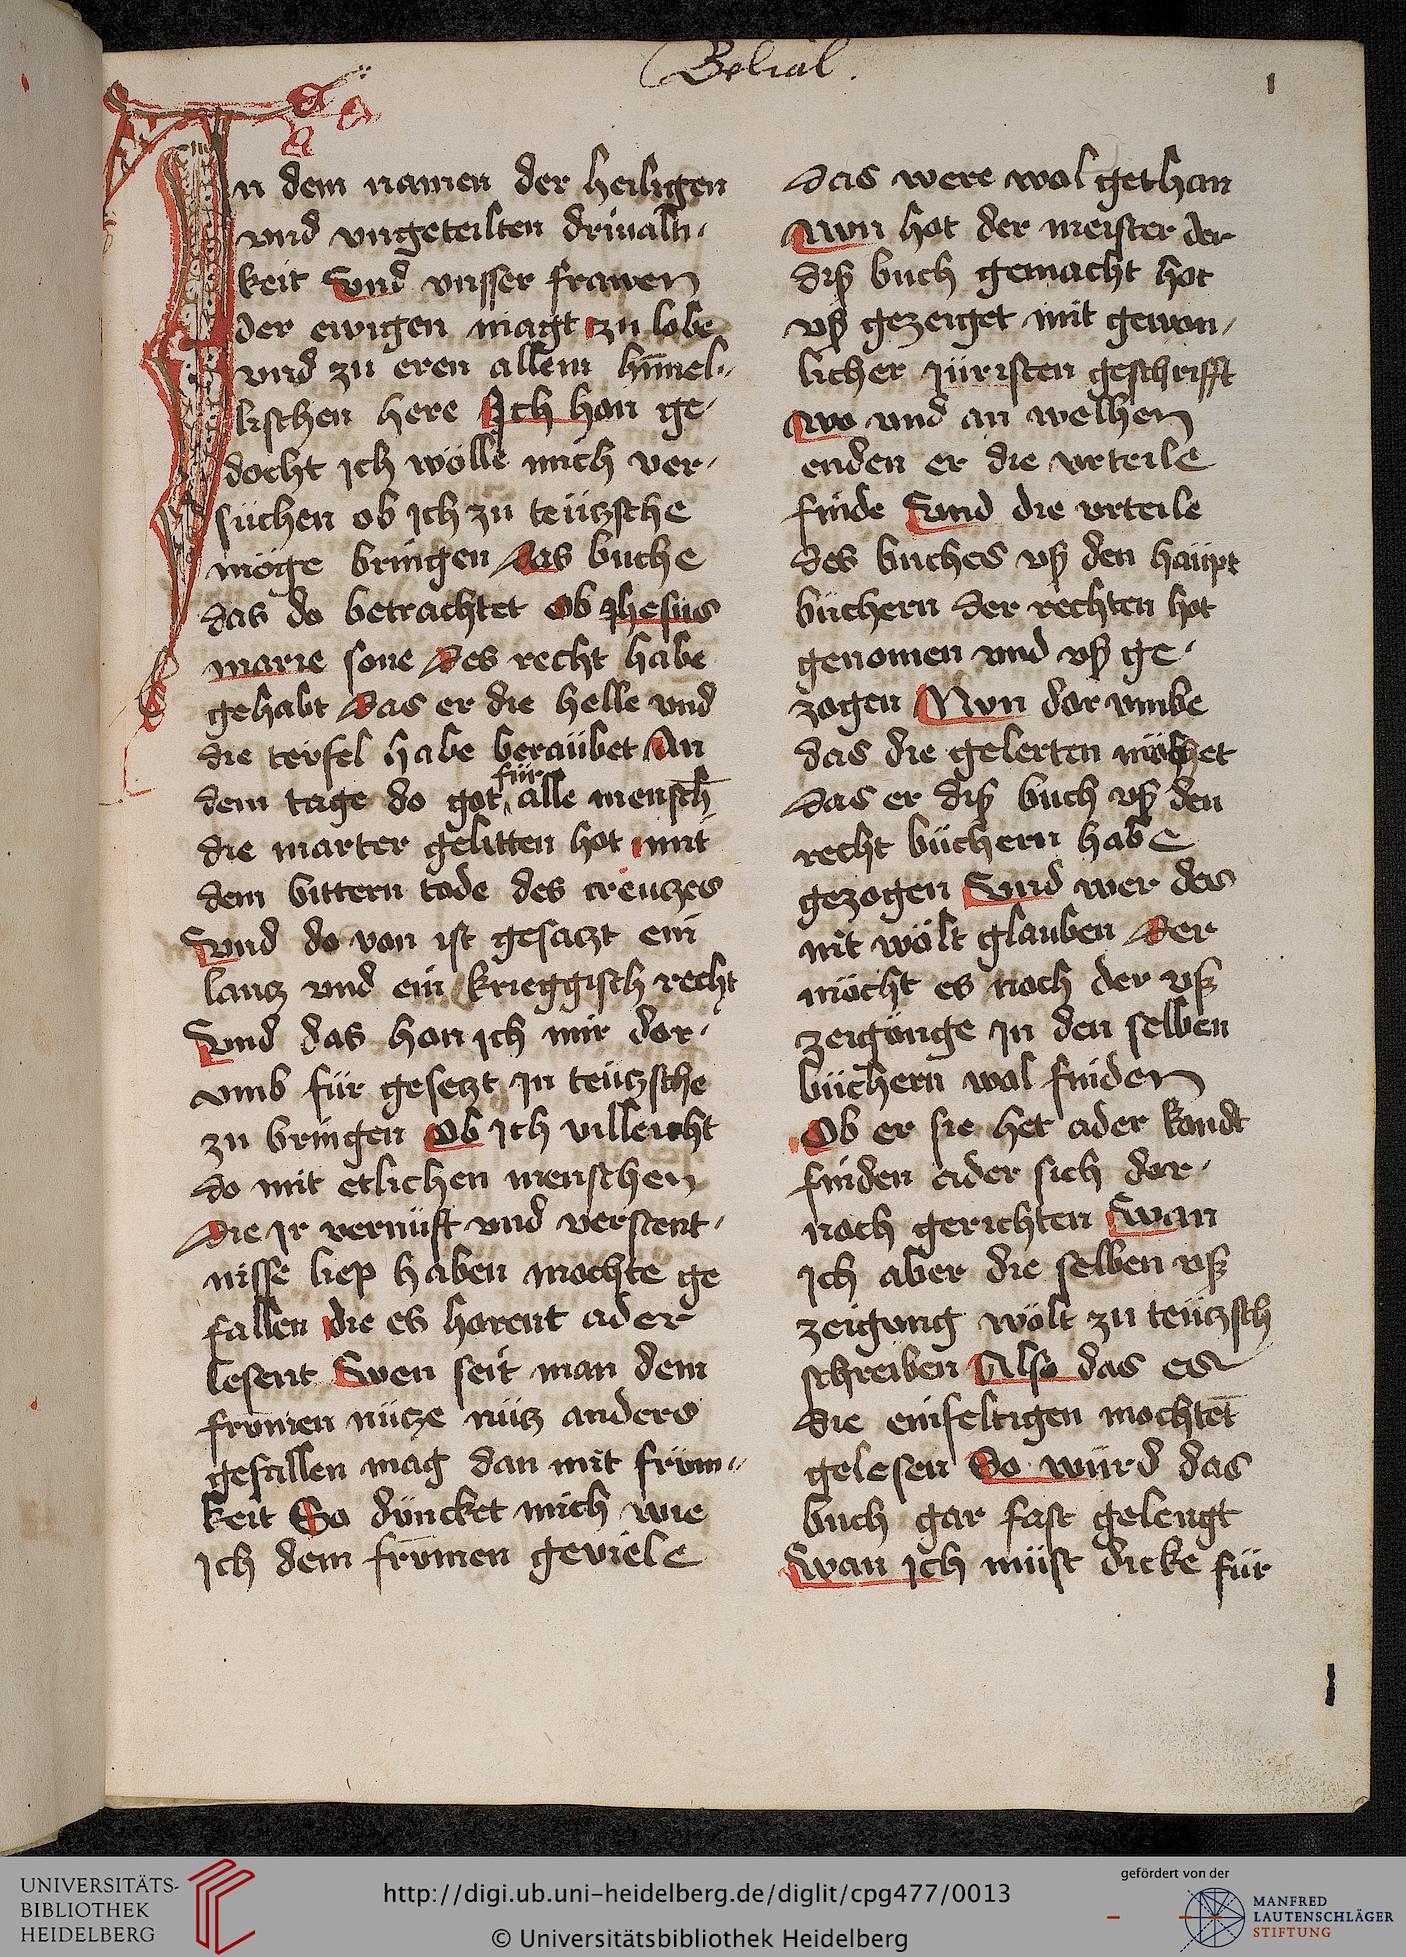 Belial.
1
In dem namen der heiligen
vnd vngeteilten driualti-
keit Vnd vnsser frawen
der ewigen magt zu lobe
vnd zu eren allem himel-
lischen here Ich han ge-
docht ich wölle mich ver-
süchen ob ich zu teützsche
möge bringen das buche
das do betrachtet Ob Jhesus
marie sone Des recht habe
gehabt Das er die helle vnd
die teifel habe beraübet An
dem tage do got für alle mensch̄
die marter gelitten hot mit
dem bittern tode des creutzes
Vnd do von ist gesatzt ein
lantz vnd ein krieggisch recht
Vnd das han ich mir dor-
vmb für gesetzt In teützsche
zu bringen Ob ich villeicht
do mit etlichen menschen
Die Ir vernüft vnd verstent-
nisse liep haben mochte ge
fallen die es horent ader
lesent Swen seit man dem
fromen nütze nütz anders
gefallen mag dan mit früm-
keit So düncket mich wie
ich dem fromen geviele
Das were wol gethan
Nvn hot der meister der
diß buch gemacht hot
vß gezeiget mit gewon-
licher jüristen geschrifft
wo vnd an welhen
enden er die vrteile
finde Vnd die vrteile
des buches vß den haüpt
büchern der rechten hot
genomen vnd vß ge-
zogen Nvn dor vmbe
das die gelerten
Das er diß buch vß den
recht büchern habe
gezogen Vnd wer des
nit wölt glauben Der
möcht es noch der vß
zeigönge In den selben
büchern wol finden
Ob er sie het ader kondt
finden ader sich dor-
noch gerichten Swan
ich aber die selben vß
zeigung wölt zu teützsch
schreiben Also das es
die einfeltigen mochtet
gelesen So würd das
buch gar fast gelengt
Swan ich müst dicke für
UNIVERSITÄTS-
BIBLIOTHEK
HEIDELBERG
http://digi.ub.uni-heidelberg.de/diglit/cpg477/0013
© Universitätsbibliothek Heidelberg
gefördert von der
MANFRED
LAUTENSCHLÄGER
STIFTUNG